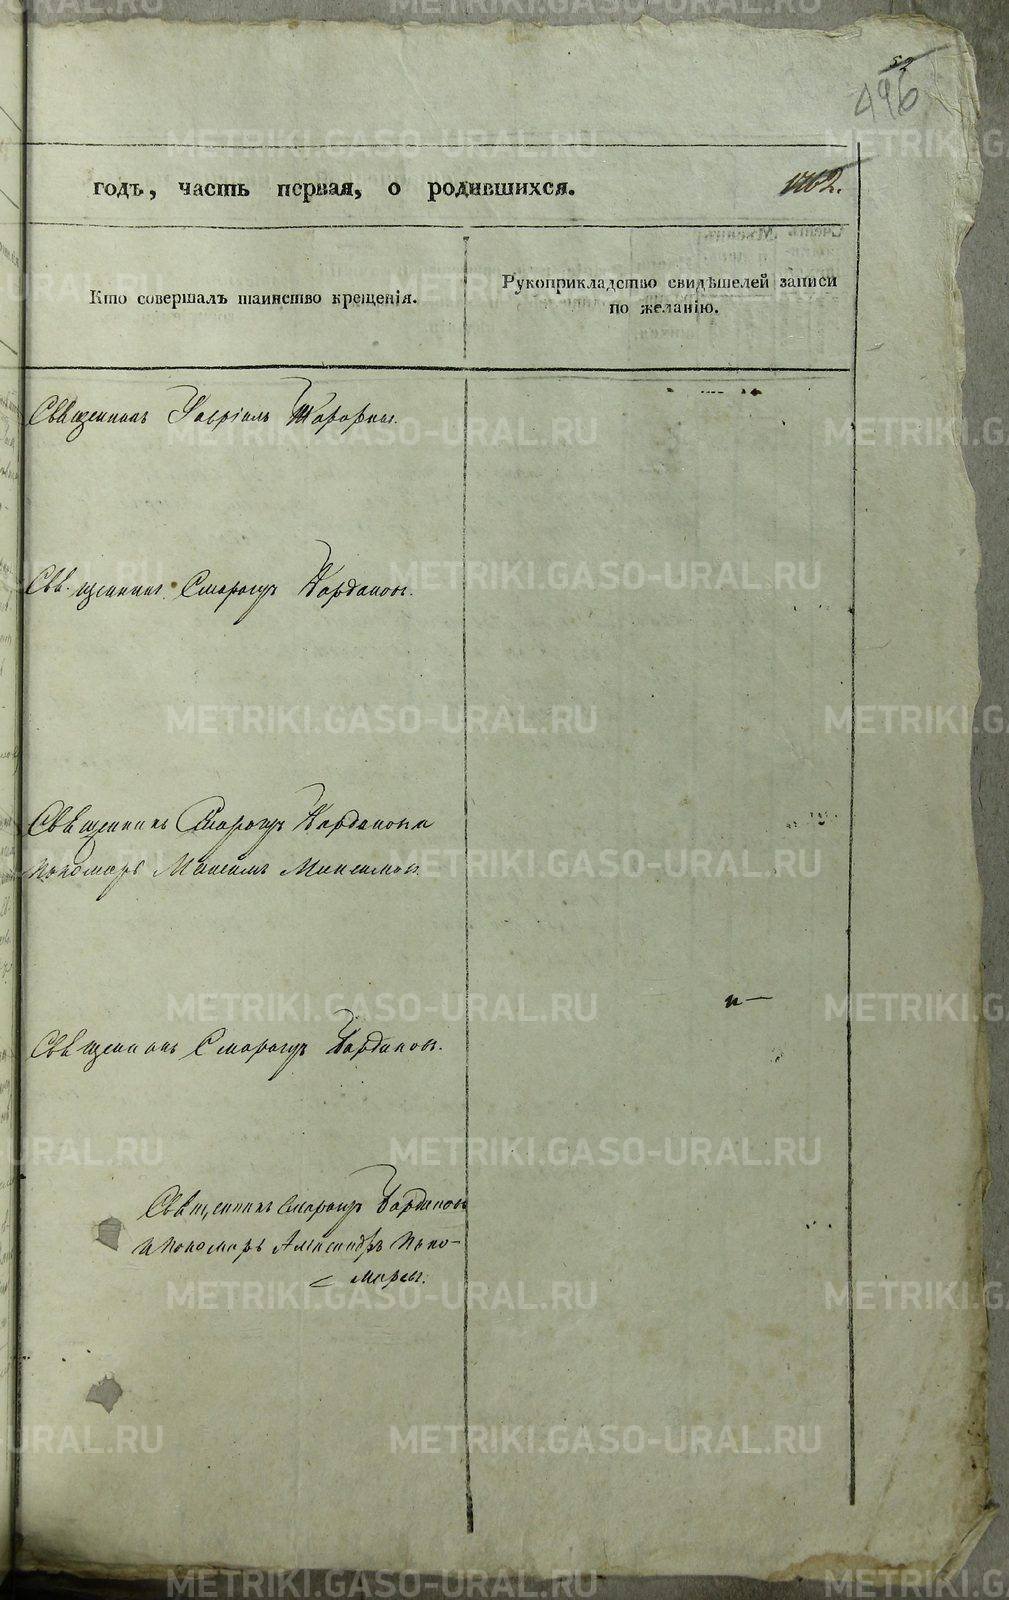 52
496
годъ, часть первая, о родившихся. 1162.
Кто совершалъ таинство крещенія.
Рукоприкладство свидѣтелей записи
по желанію.
Священникъ Гавріилъ
Священникъ Смарагдъ
Священникъ Смарагдъ
пономарь Максимъ Максимовъ
Священникъ Смарагдъ
Священникъ Смарагдъ
и пономарь Александръ Поно-
маревъ.
METRIKI.GASO-URAL.RU